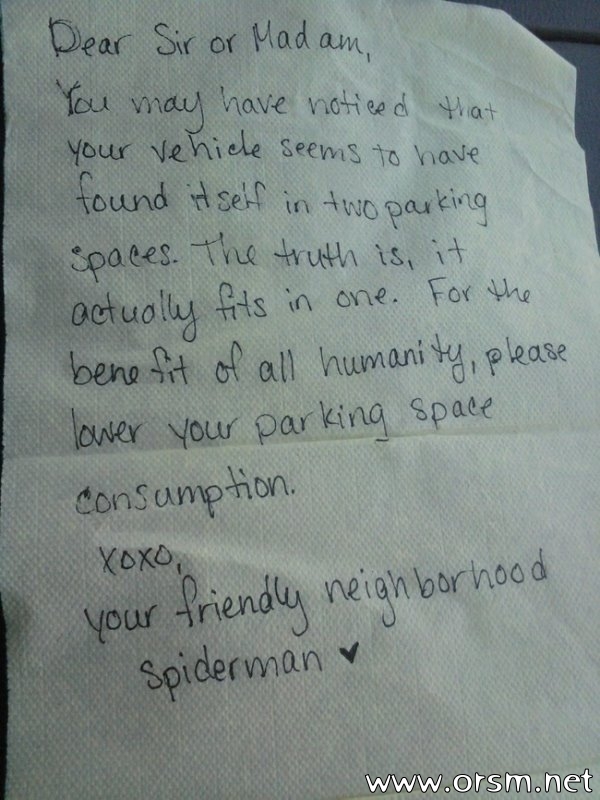 Dear Sir or Madam,
You may have noticed that
your vehicle seems to have
found itself in two parking
spaces. The truth is, it
actually fits in one. For the
benefit of all humanity, please
lower your parking space
consumption.
xoxo,
your friendly neighborhood
spiderman ♥
www.orsm.net